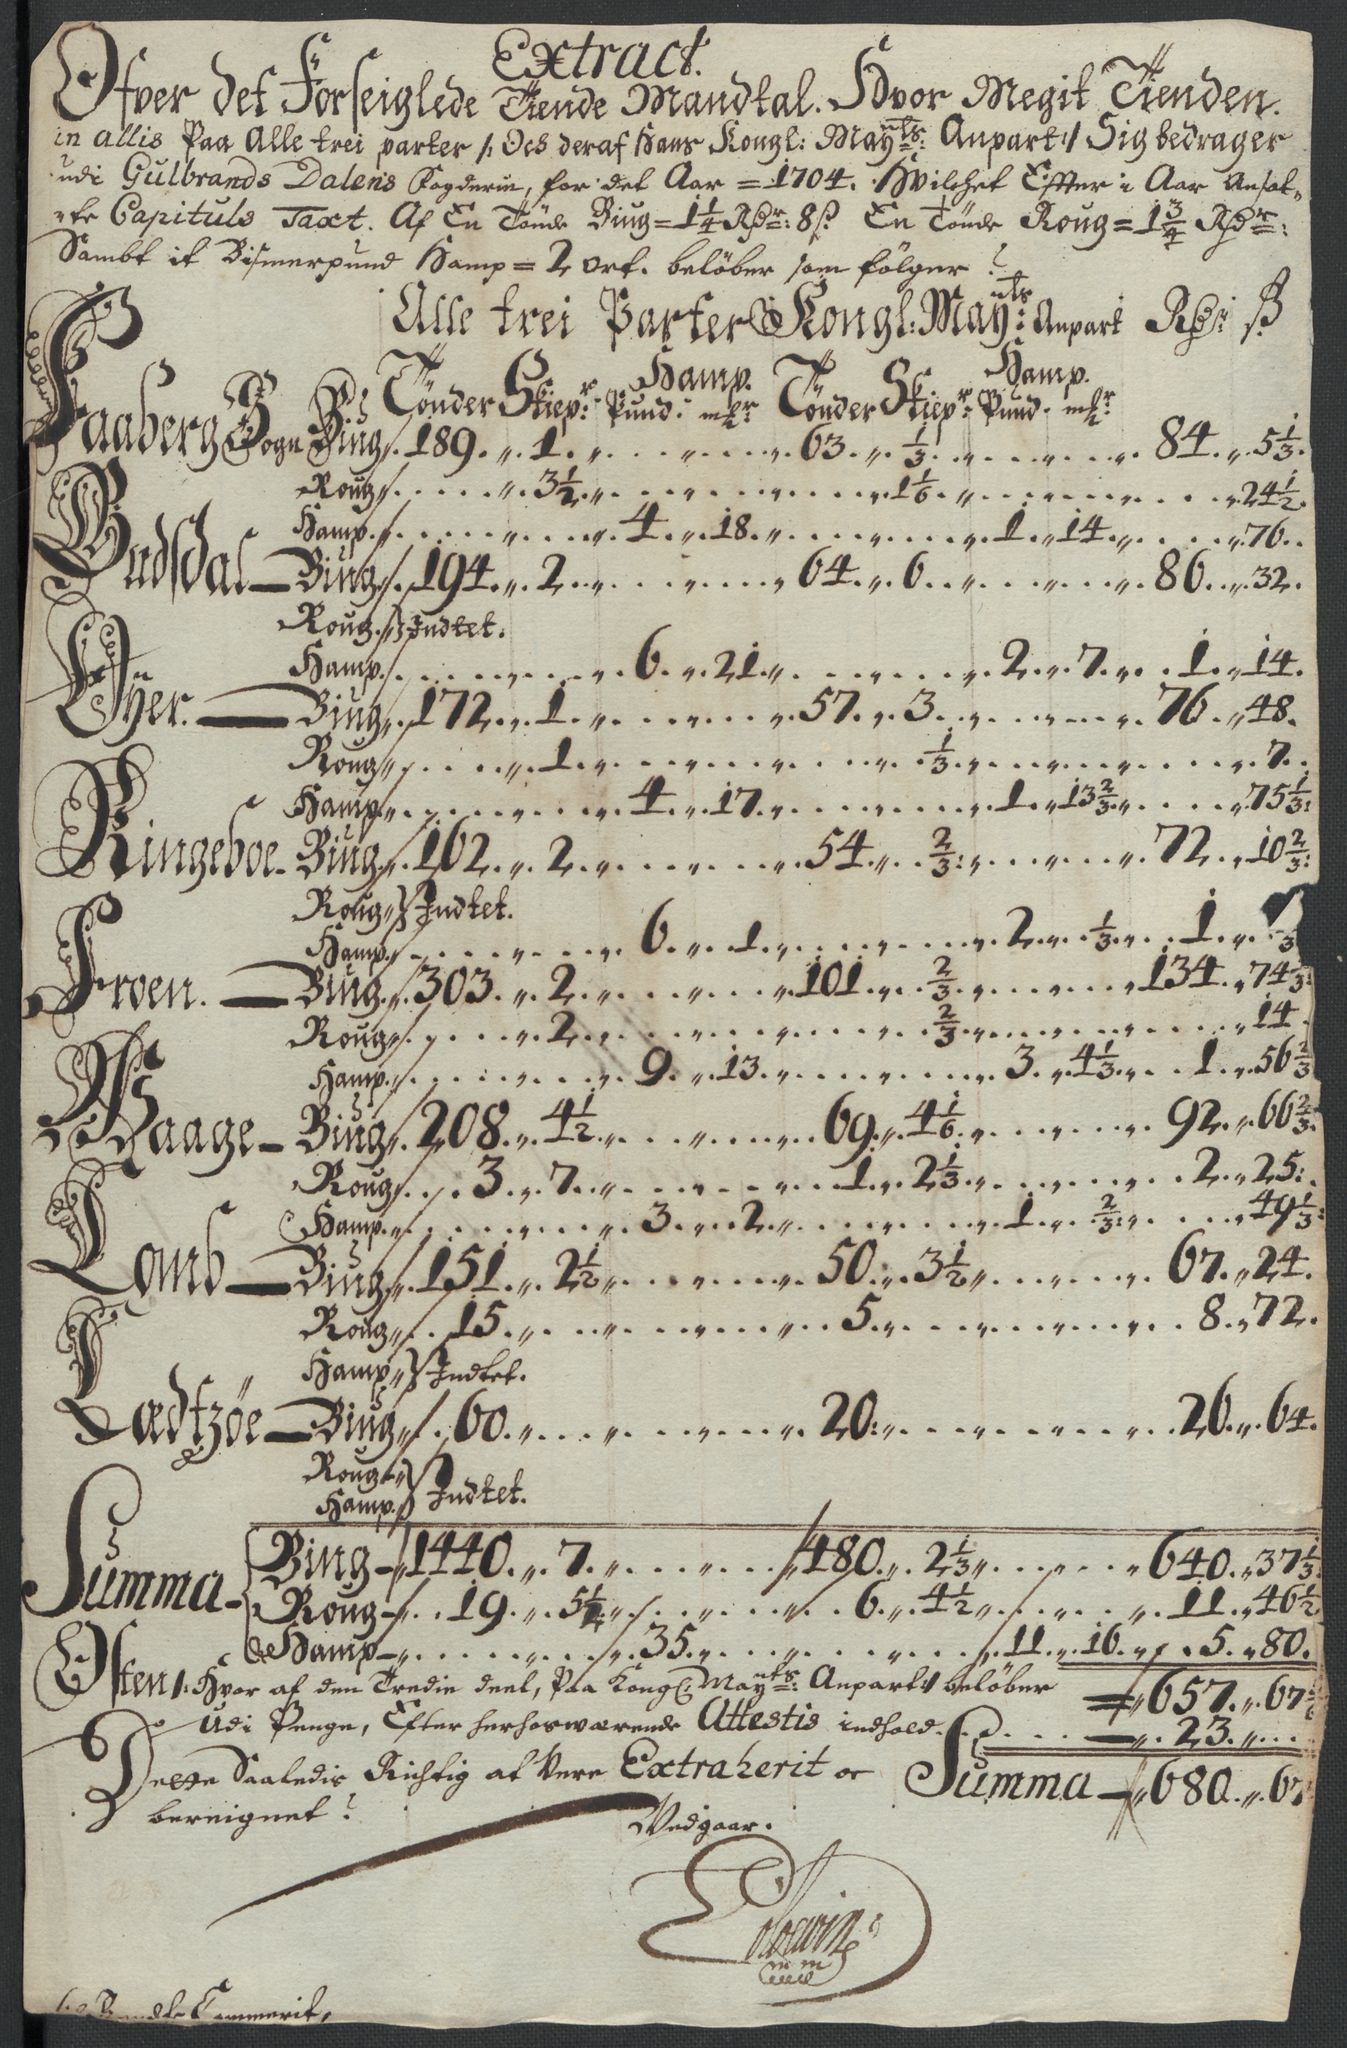 Extract.
Ofver det Forseiglede Tiende Mandtal. Hvor Megit Tienden.
in allis Paa Alle trei parter /: Och deraf Hans Kongl: Mayts: Anpart :/ Sig bedrager
udi Gulbrands Dalens Fogderie, for det Aar = 1704. Hvilchet Effter i Aar Ansat-
-te Capituls Taxt. Af En Tønde Biug = 1 1/4 Rdr: 8 ß En Tønde Roug = 1 3/4 Rdr:
Sambt it Bismerpund Hamp = 2 ort. beløber som følger
Alle trei Parter Kongl: Mayts: Anpart Rdr ß
Hamp. Hamp.
Tønder Skiepr: Pund. mkr Tønder Skiepr: Pund. mkr
Faaberg Sogn Biug 189. 1. 63. 1/3. 84. 5 1/3.
Roug 3 1/2. 1 1/6. 24 1/2.
Hamp. 4. 18. 1. 14. 76.
Gudsdal Biug 194. 2. 64. 6. 86. 32.
Roug Indtet.
Hamp. 6. 21. 2. 7. 1. 14.
Øyer. Biug 172. 1. 57. 3. 76. 48.
Roug 1. 1/3. 7.
Hamp 4. 17. 1. 13 2/3. 75 1/3:
Ringeboe Biug 162. 2. 54. 2/3: 72. 10 2/3:
Roug Indtet.
Hamp. 6. 1. 2. 1/3. 1.
Froen. Biug 303. 2. 101. 2/3. 134. 74 2/3:
Roug 2. 2/3. 14.
Hamp. 9. 13. 3. 4 1/3. 1. 56 2/3
Waage Biug 208. 4 1/2. 69. 4 1/6. 92. 66 2/3.
Roug 3. 7. 1. 2 1/3. 2. 25:
Hamp. 3. 2. 1. 2/3: 49 1/3:
Lomb Biug 151. 2 1/2. 50. 3 1/2. 67. 24.
Roug 15. 5. 8. 72.
Hamp Indtet.
Lædtzøe Biug 60. 20: 26. 64.
Roug
Hamp. Indtet.
Summa Biug 1440. 7. 480. 2 1/3. 640. 37 1/3.
Roug 19. 5 1/2. 6. 4 1/2. 11. 46 1/2
Hamp 35. 11. 16. 5. 80.
Osten /: Hvor af den Tredie deel, Paa Kongl: Mayts: Anpart :/ beløber 657. 67
Udi Penge, Efter herhosværende Attestis indhold. 23.
Dette Saaledis Richtig at Vere Extraherit oc Summa 680. 67
bereignet
Vedgaar.